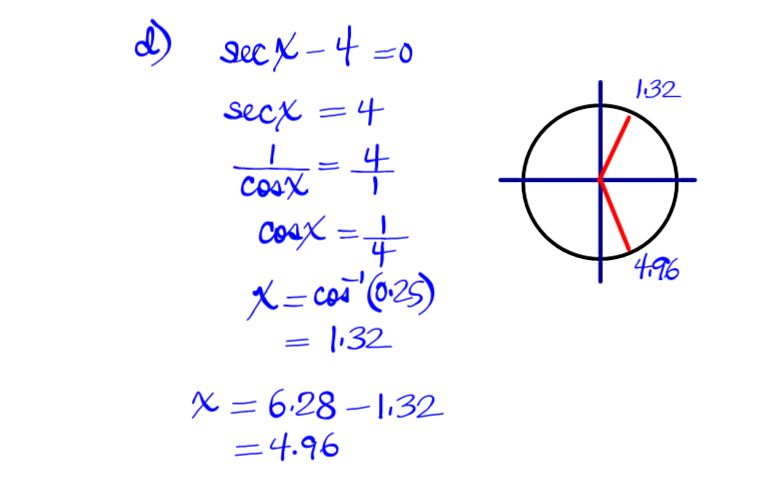 d) sec x - 4 = 0
sec x = 4
1/cos x = 4/1
cos x = 1/4
x = cos⁻¹(0.25)
= 1.32
x = 6.28 - 1.32
= 4.96
1.32
4.96